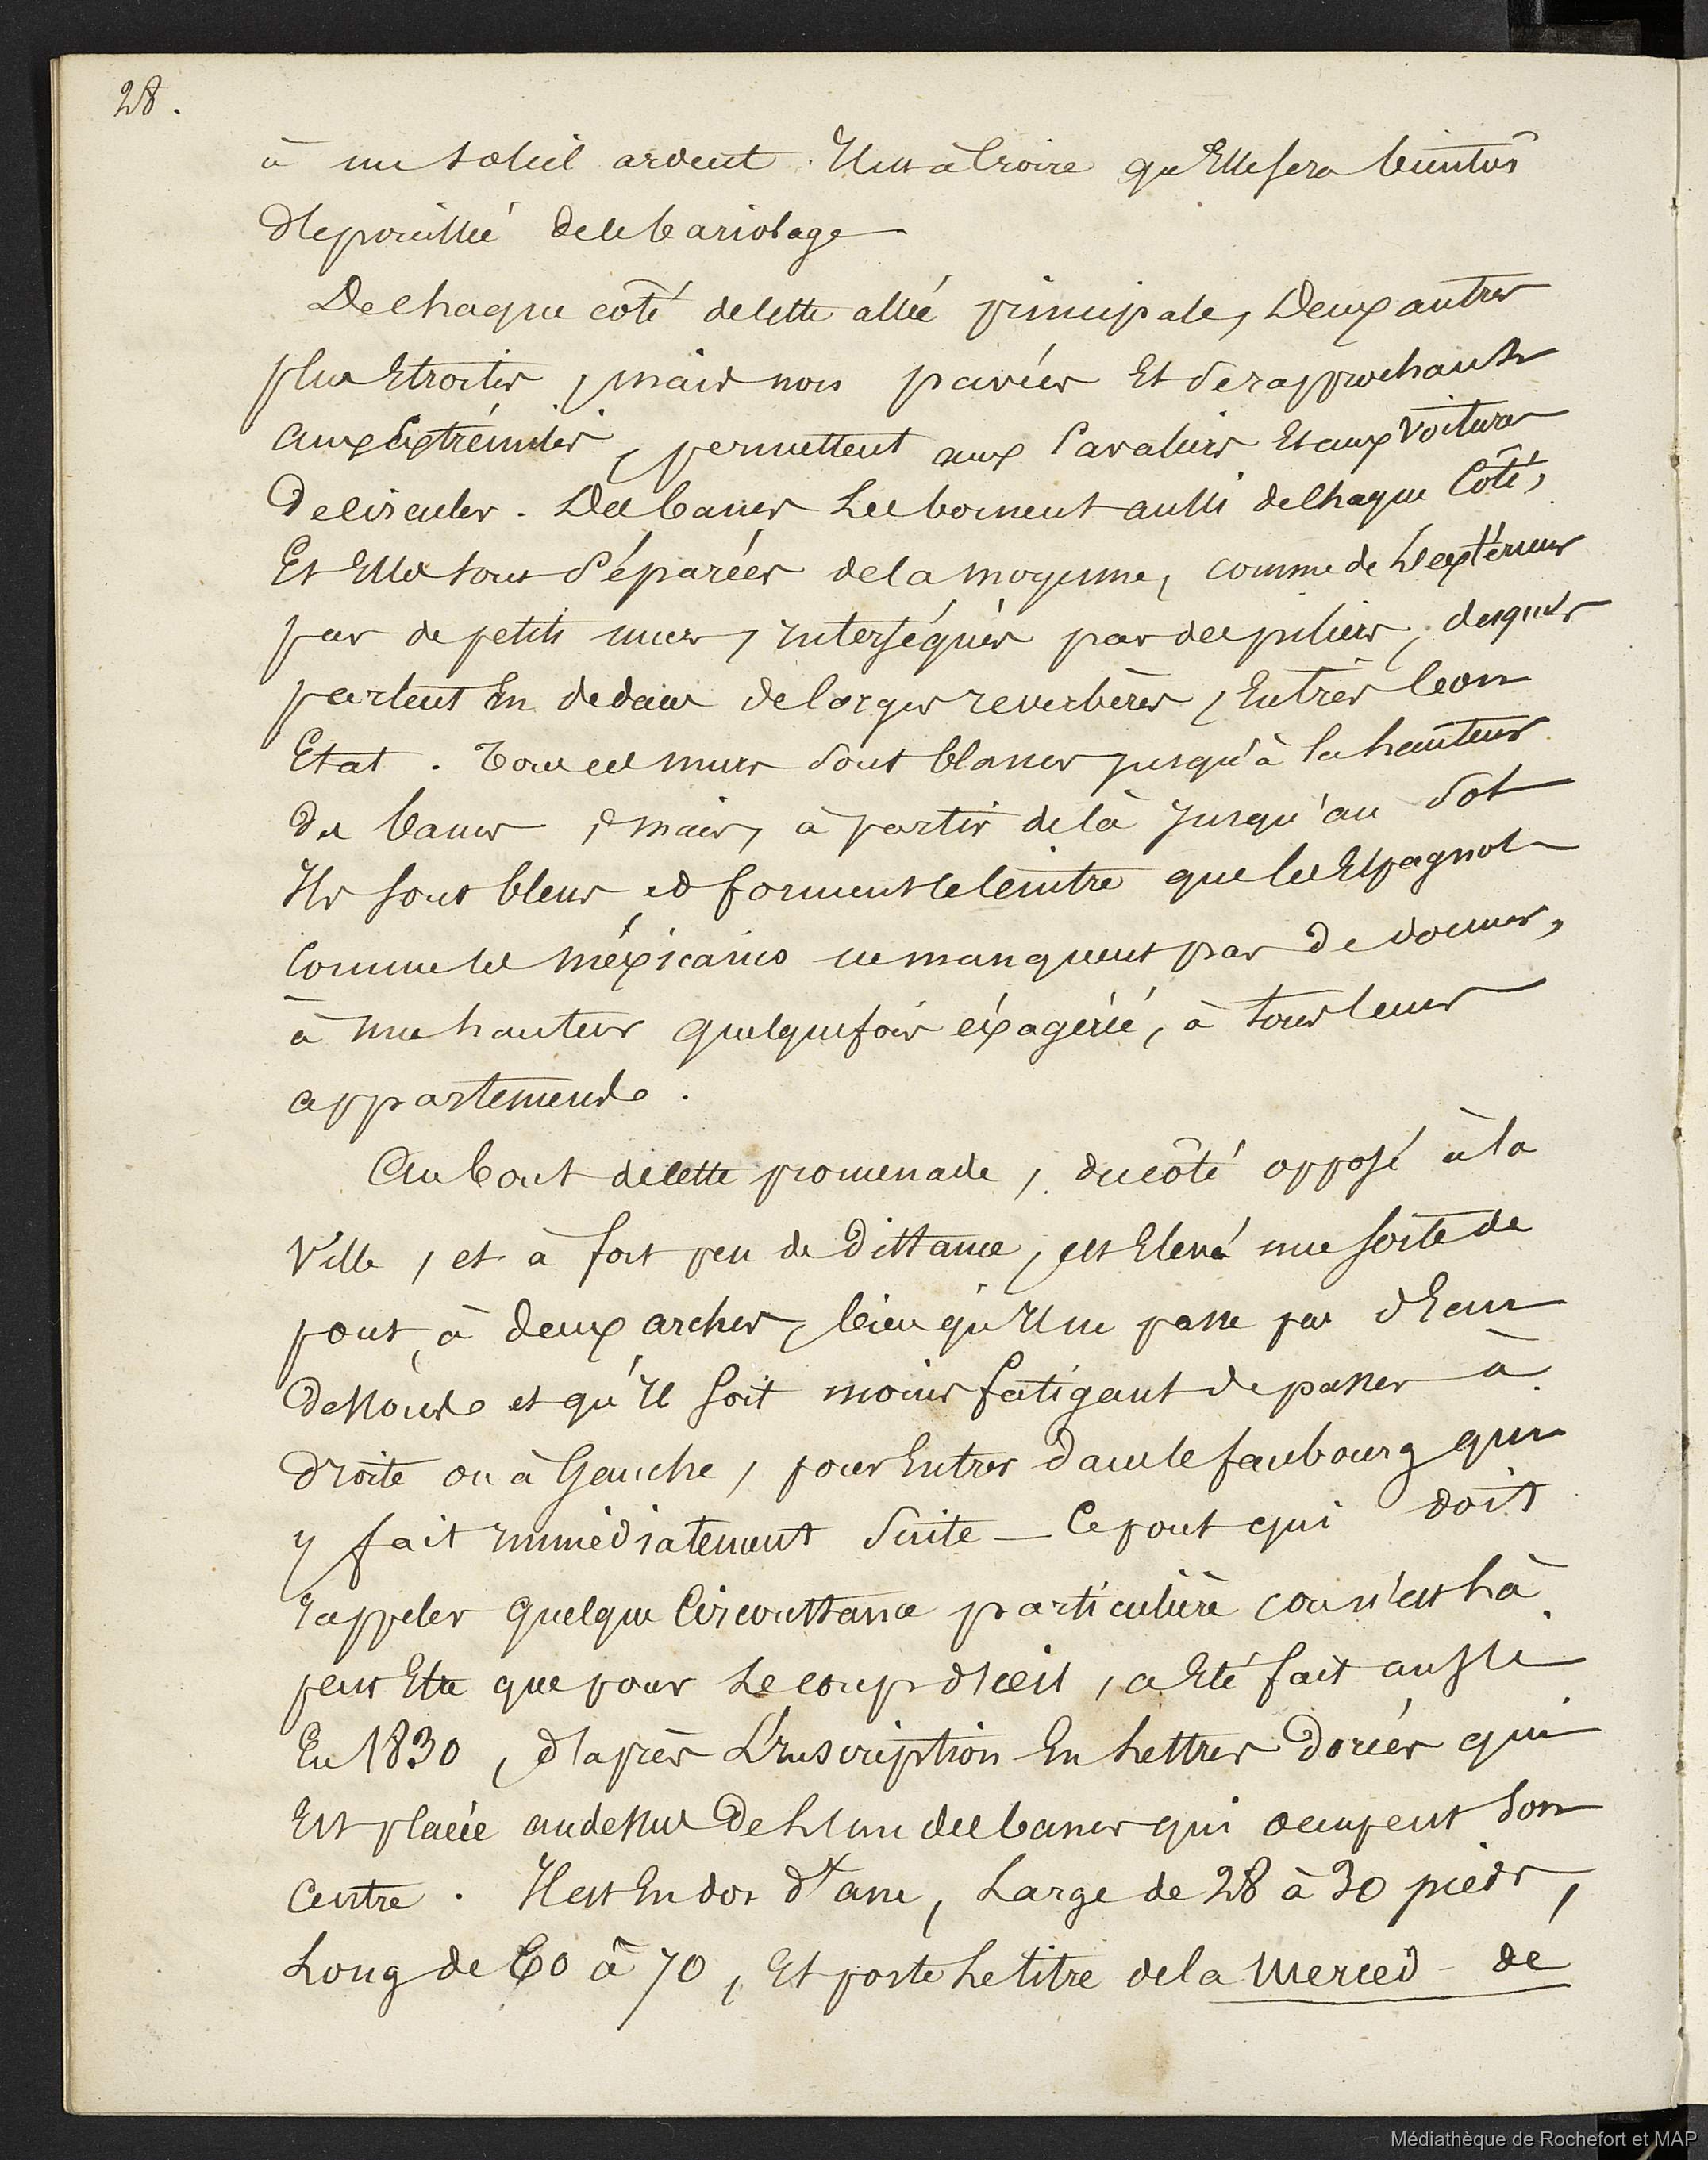 28.
à un soleil ardent. Il est à Croire qu'Elle sera bientôt
dépouillée de ce bariolage
De chaque coté de cette allée principale, Deux autres
plus Etroites, mais non pavées Et se rapprochant
aux Extrémités, permettent aux Cavaliers Et aux Voitures
de circuler. Des bancs Les bornent aussi de chaque Côté,
Et Elles sont séparées de la moyenne, comme de L'extérieur
par de petits murs, interséqués par des piliers, desquels
partent En dedans de larges reverbères, En très bon
Etat. Tous ces murs sont blancs jusqu'à la hauteur
des bancs, mais, à partir de là jusqu'au sol
Ils sont bleus et forment le ceintre que les Espagnols
comme les méxicains ne manquent pas de donner,
à une hauteur quelquefois éxagérée, à tous leurs
appartements.
Au bout de cette promenade, du côté opposé à la
Ville, et à fort peu de Distance, est Elevé une sorte de
pont, à deux arches, bien qu'Il ne passe pas d'Eau
dessous et qu'Il soit moins fatigant de passer à
droite ou à Gauche, pour Entrer dans le faubourg qui
y fait immédiatement suite — Ce pont qui doit
rappeler quelque Circonstance particulière ou n'est là
peut Etre que pour Le coup d'œil, a Eté fait aussi
En 1830, d'après L'Inscription En Lettres Dorées qui
Est placée au dessus De L'un des bancs qui occupent son
Centre. Il est En dos d'ane, Large de 28 à 30 pieds,
Long de 60 à 70, Et porte Le titre de la Merced de
Médiathèque de Rochefort et MAP